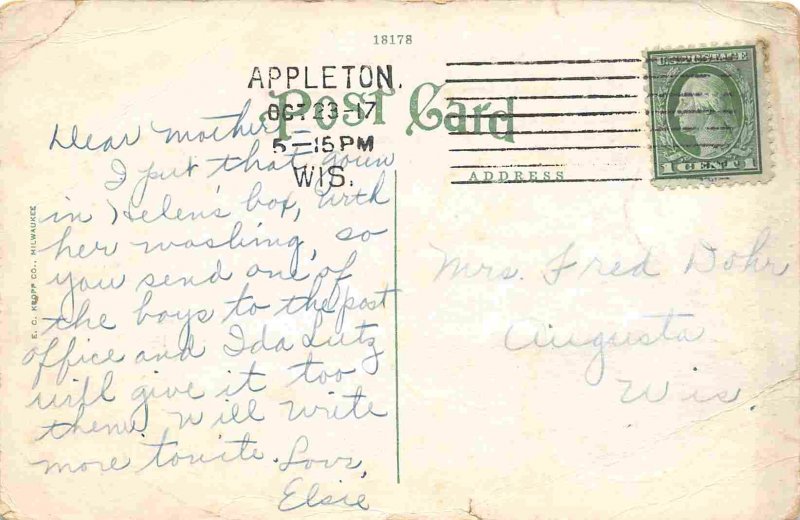 18178
APPLETON.
OCT 23-17
5-15 PM
WIS.
Post Card
ADDRESS
1 CENT 1
E. C. KROPP CO., MILWAUKEE
Dear Mother-
I put that goun
in Helen's box, with
her washing, so
you send one of
the boys to the post
office and Ida Lutz
will give it too
them. Will write
more tonite. Love,
Elsie
Mrs. Fred Dohr
Augusta
Wis.